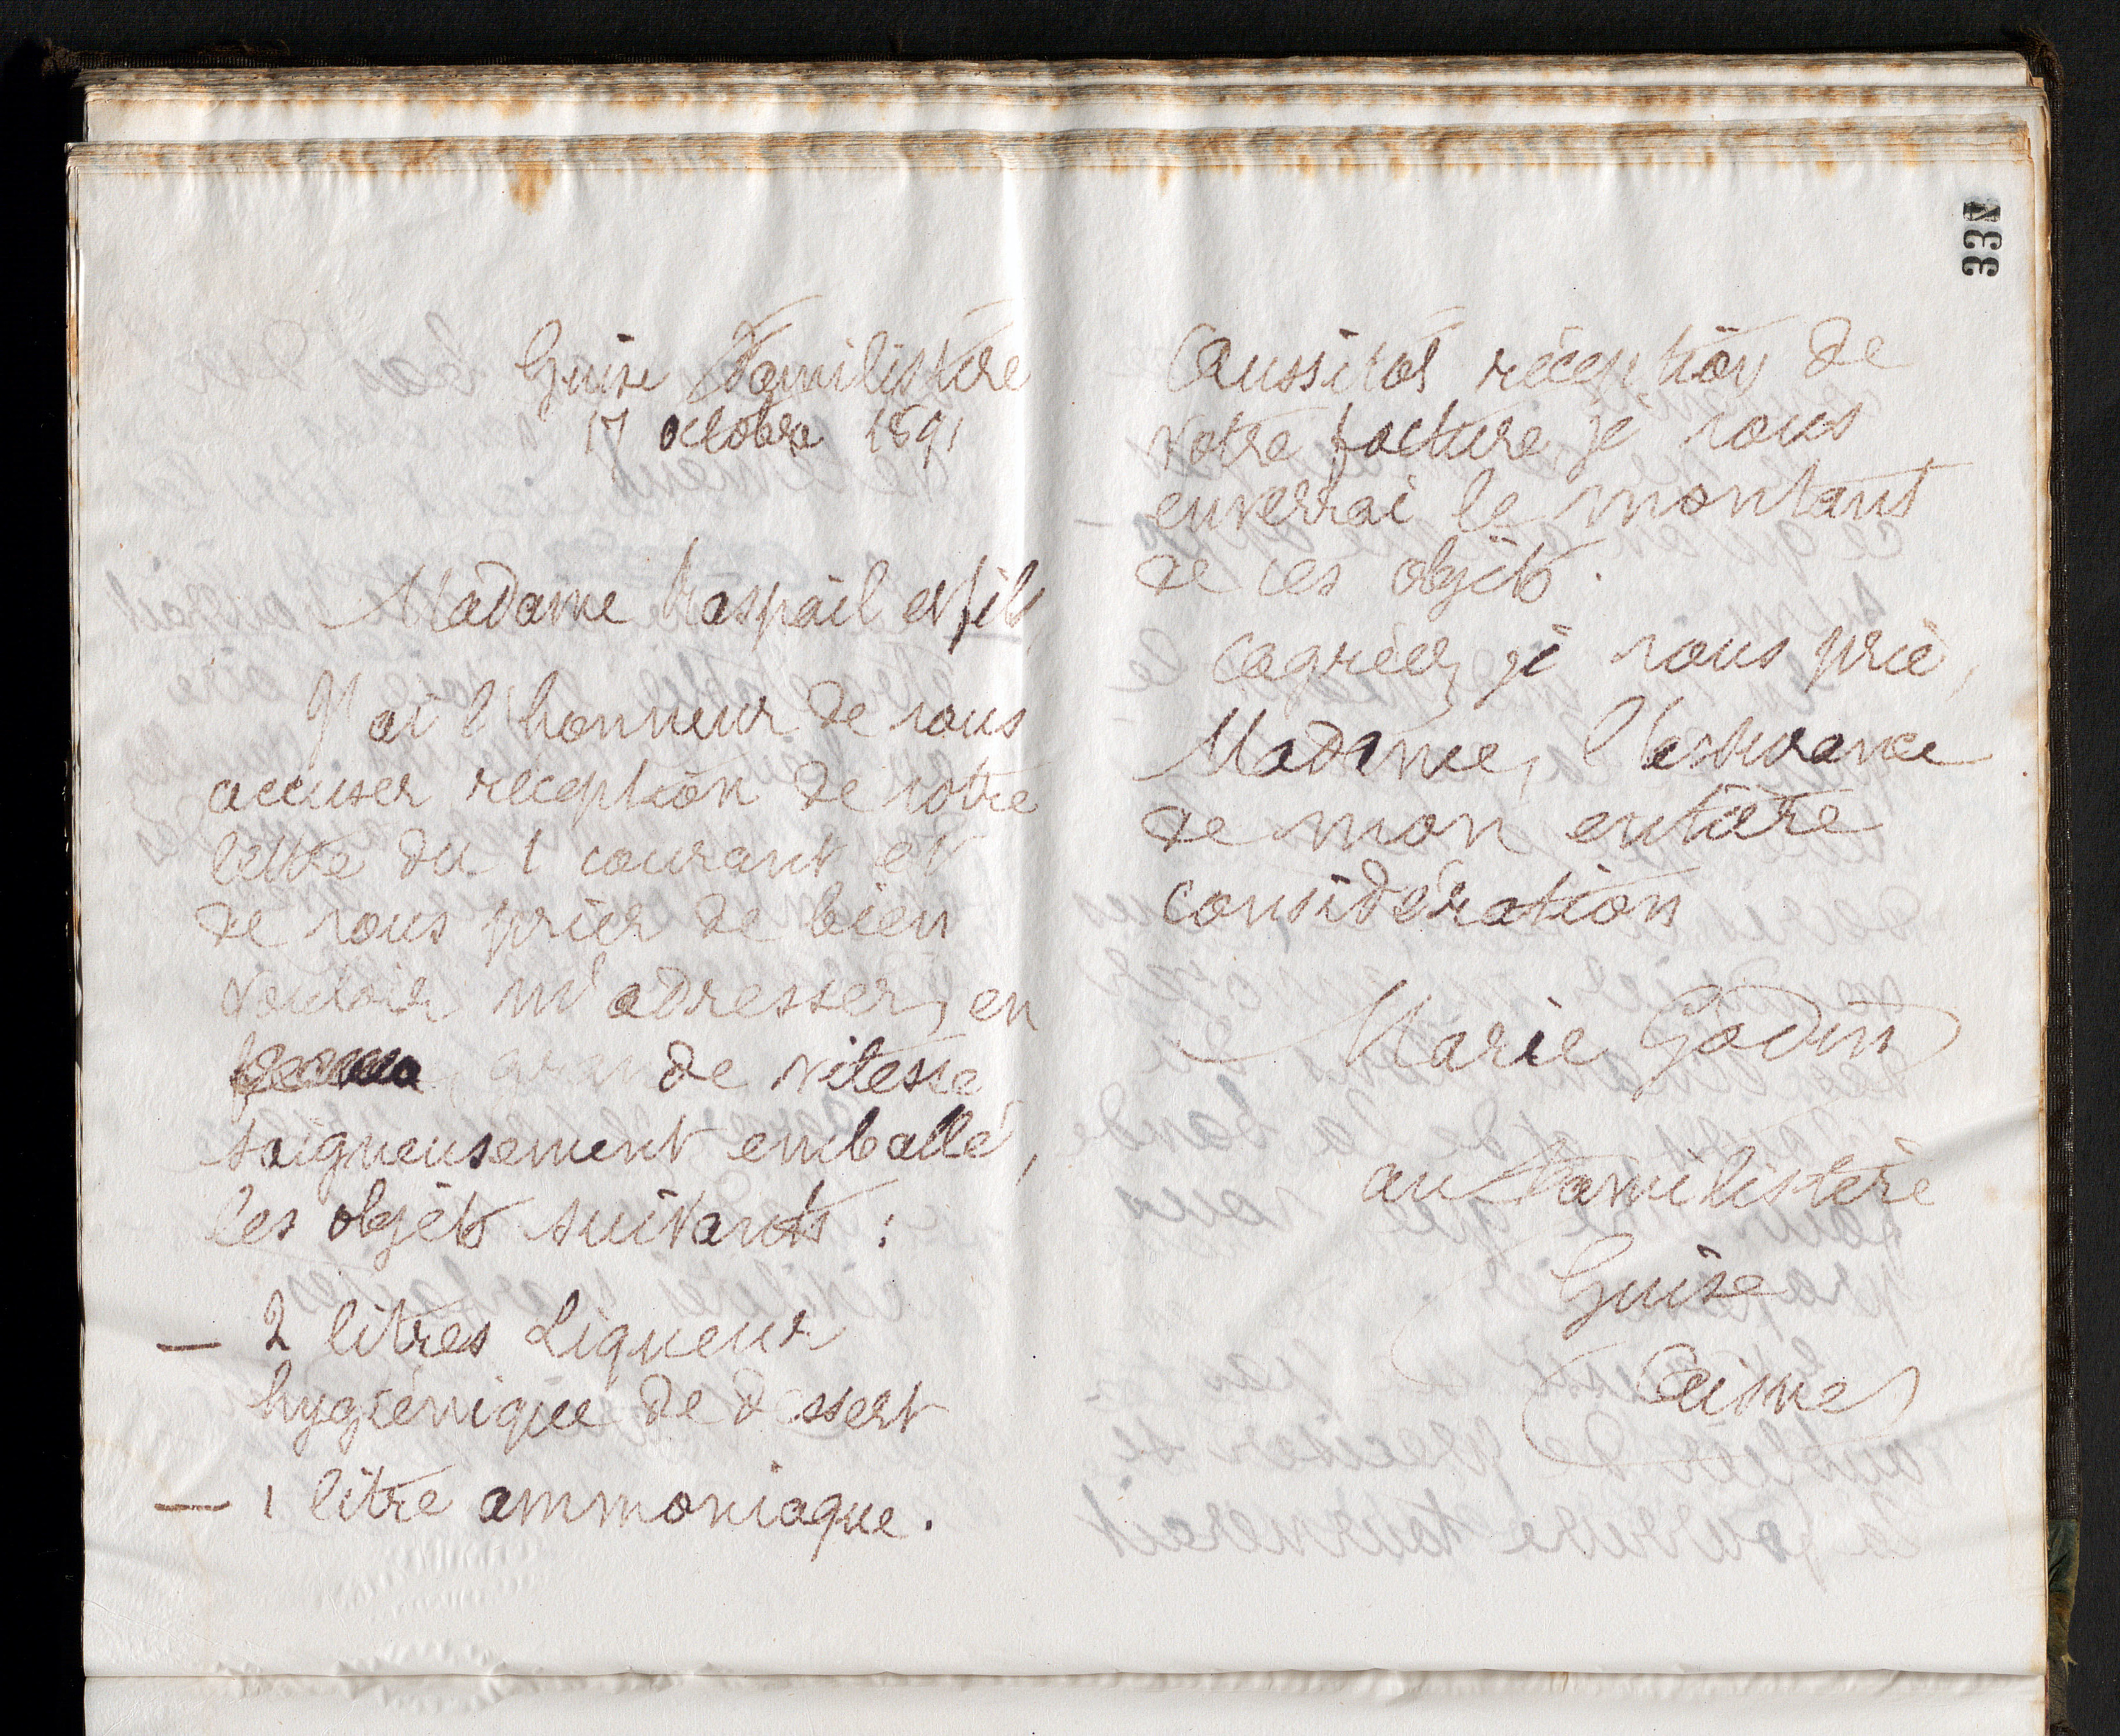 Guise Familistère
17 octobre 1891
Madame Raspail et fils,
J'ai l'honneur de vous
accuser réception de votre
lettre du 1 courant et
de vous prier de bien
vouloir m'adresser, en
grande vitesse
soigneusement emballé,
les objets suivants :
— 2 litres Liqueur
hygiénique de dessert
— 1 litre ammoniaque.
Aussitôt réception de
votre facture je vous
enverrai le montant
de ces objets.
Agréez, je vous prie,
Madame, l'assurance
de mon entière
considération
Marie Godin
au Familistère
Guise
Aisne